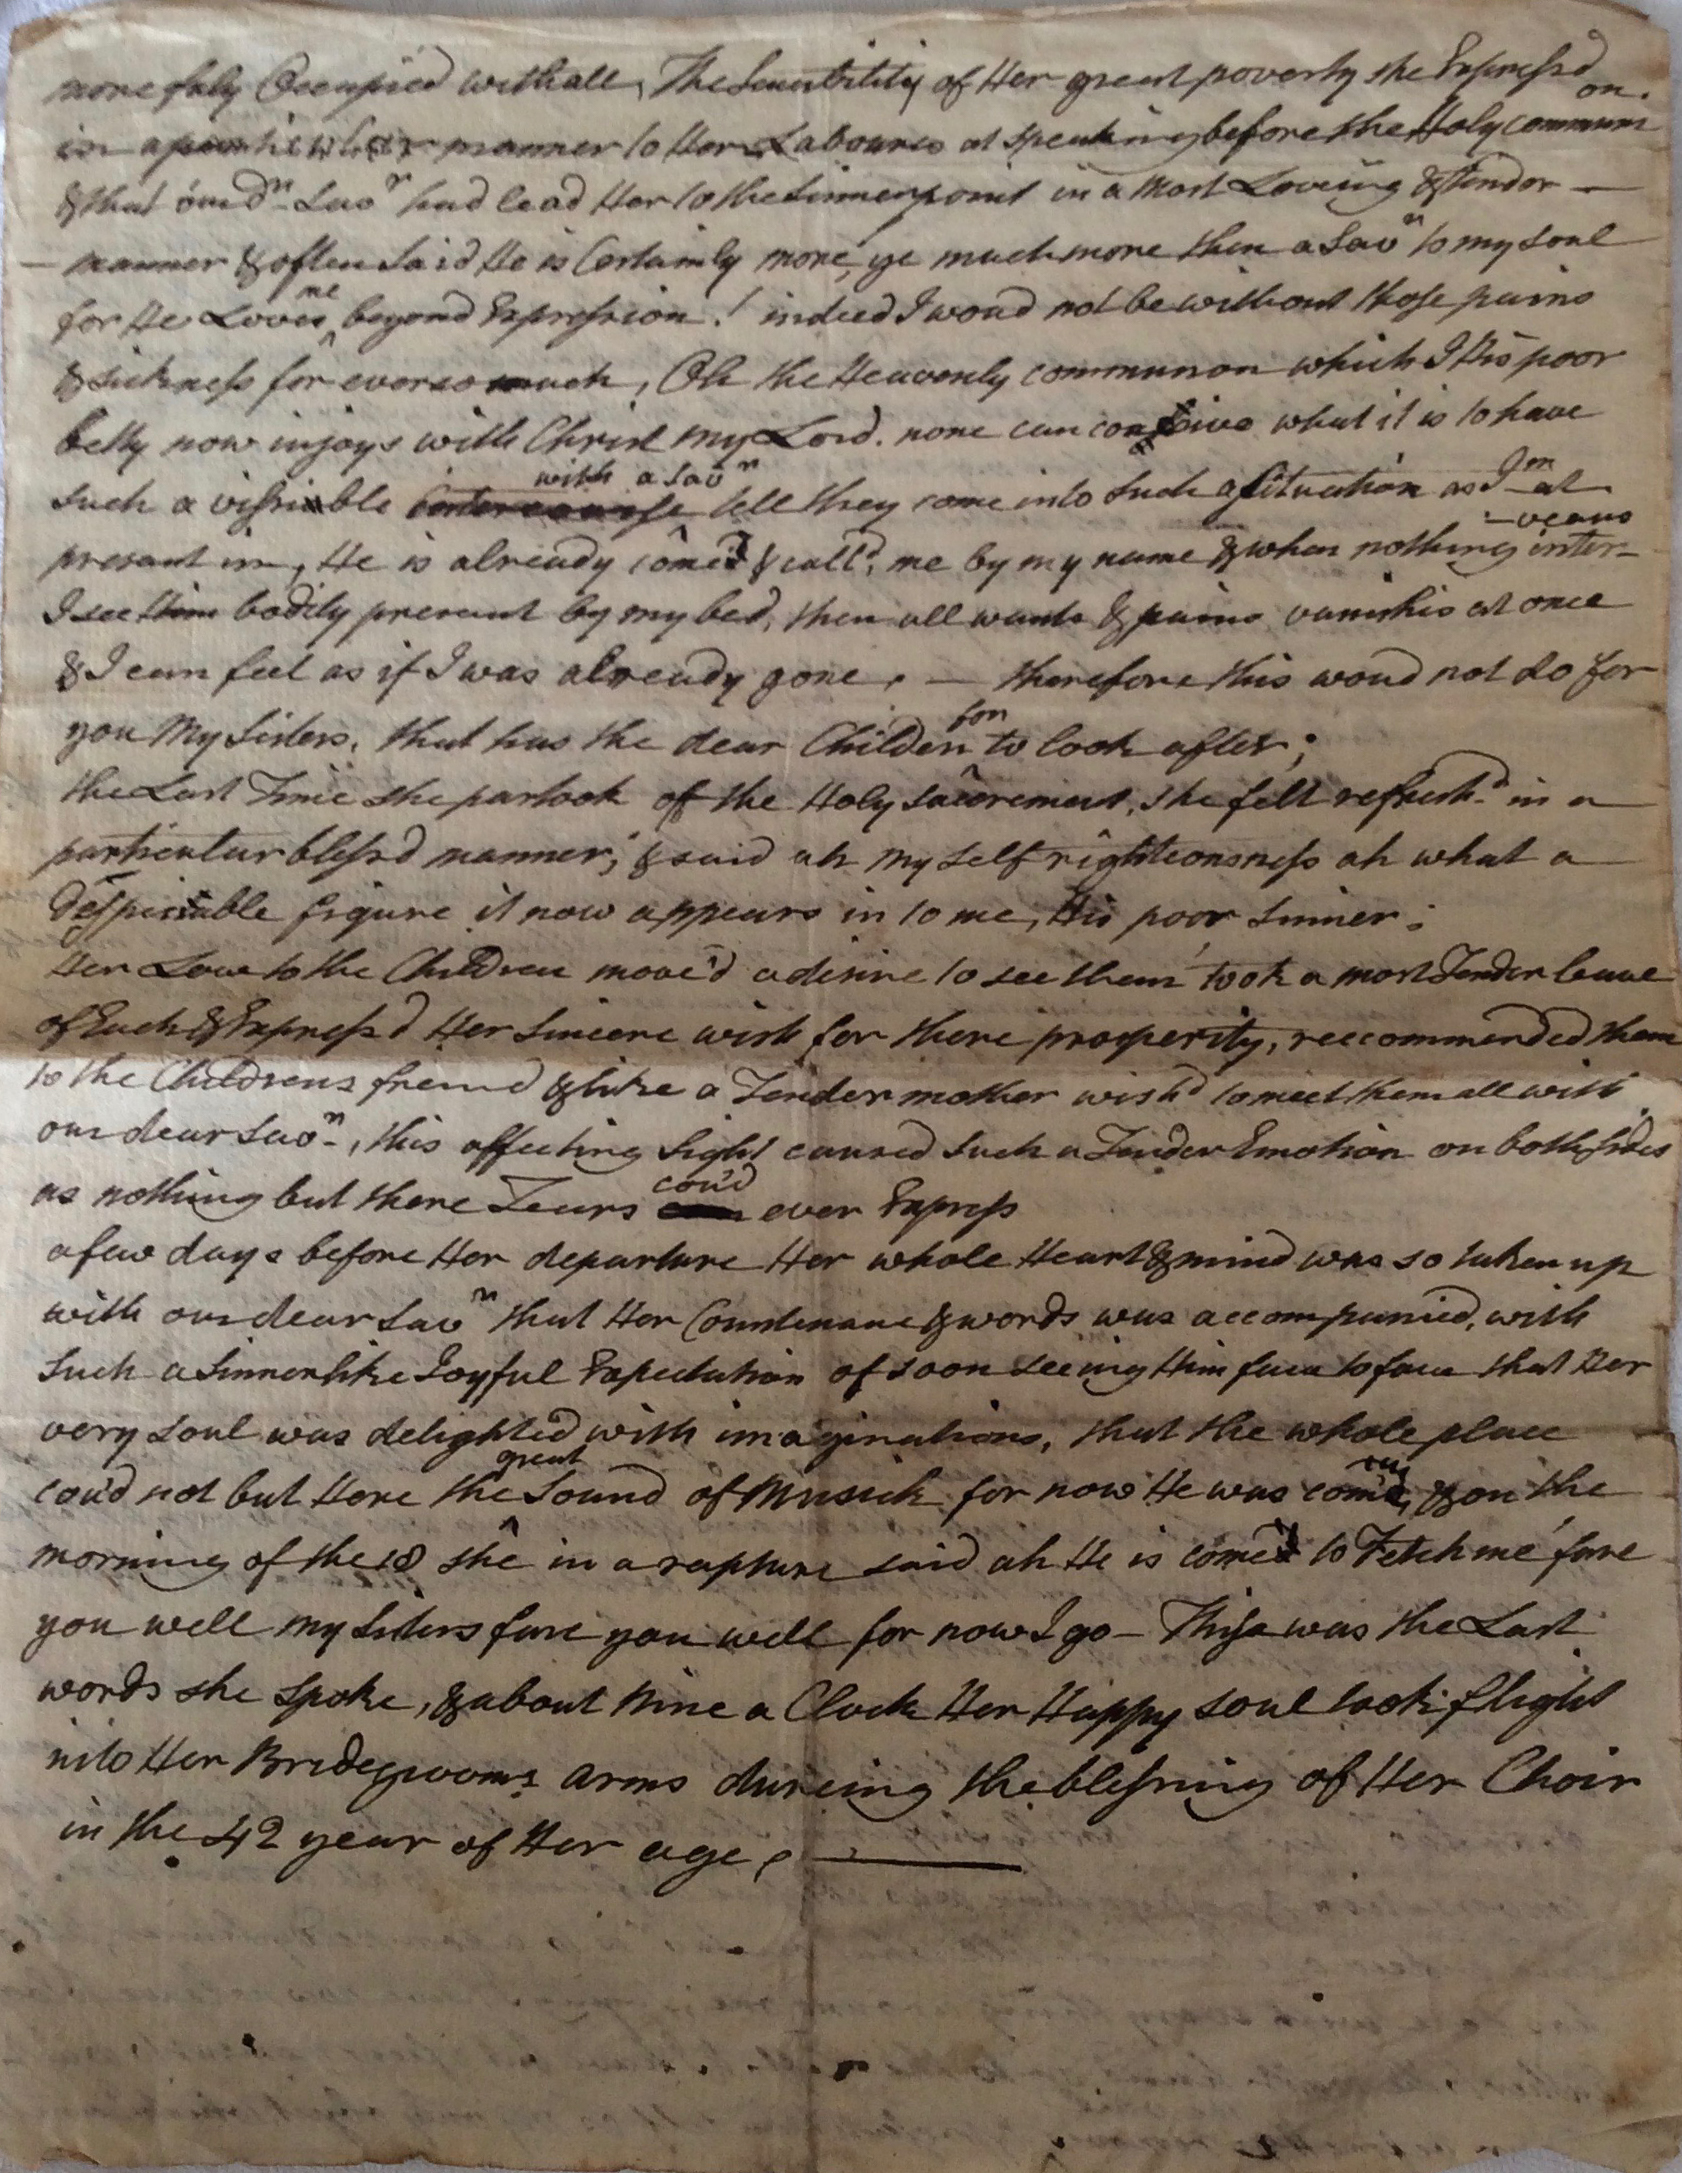 more fuly Occupied withall, The Sencibility of Her great poverty she Express'd
in a particular manner to Her Laboures at speaking before the Holy Communion.
& that our dr. Savr had lead Her to the Sinner point in a Most Loveing & Tender —
— manner & often Said He is Certainly more, ye much more then a Savr to my Soul
for He Loves me beyond Expression! indeed I woud not be without those pains
& sickness for ever so much, Oh the Heavenly communion which I His poor
betty now injoys with Christ my Lord. none can conceive what it is to have
Such a vissiable intercourse with a Savr tell they come into Such a Situation as I m at
presant in, He is already come & call'd me by my name & when nothing interveans
I see Him bodily presant by my bed, then all wants & pains vanishis at once
& I can feel as if I was already gone, — therefore this woud not do for
you My Sisters, that has the dear Childern for to look after;
the Last Time she partook of the Holy Sacrement, she felt refresh'd in a
particular bless'd manner; & said ah my Self righteousness ah what a
despisable figure it now appears in to me, His poor Sinner;
Her Love to the Children move'd a desire to see them, took a most Tender leave
of Each & Express'd Her Sincere wish for there prosperity, reccommended them
to the Childrens friend & like a Tender mother wish'd to meet them all with
our dear Savr, this affecting Sight caused Such a Tender Emotion on both Sides
as nothing but there Tears cou'd ever Express
a few days before Her departure Her whole Heart & mind was so taken up
with our dear Savr that Her Countenance & words was accompanied, with
Such a Sinnerlike Joyful Expectation of soon seeing Him face to face that Her
very Soul was delighted with imaginations, that the whole place
cou'd not but Here the great Sound of Musick for now He was coming & on the
morning of the 18 she in a rapture said ah He is come to Fetch me fare
you well my Sisters fare you well for now I go — This was the Last
words she Spoke, & about Nine a Clock Her Happy Soul took flight
into Her Bridegrooms arms dureing the blessing of Her Choir
in the 42 year of Her age, —